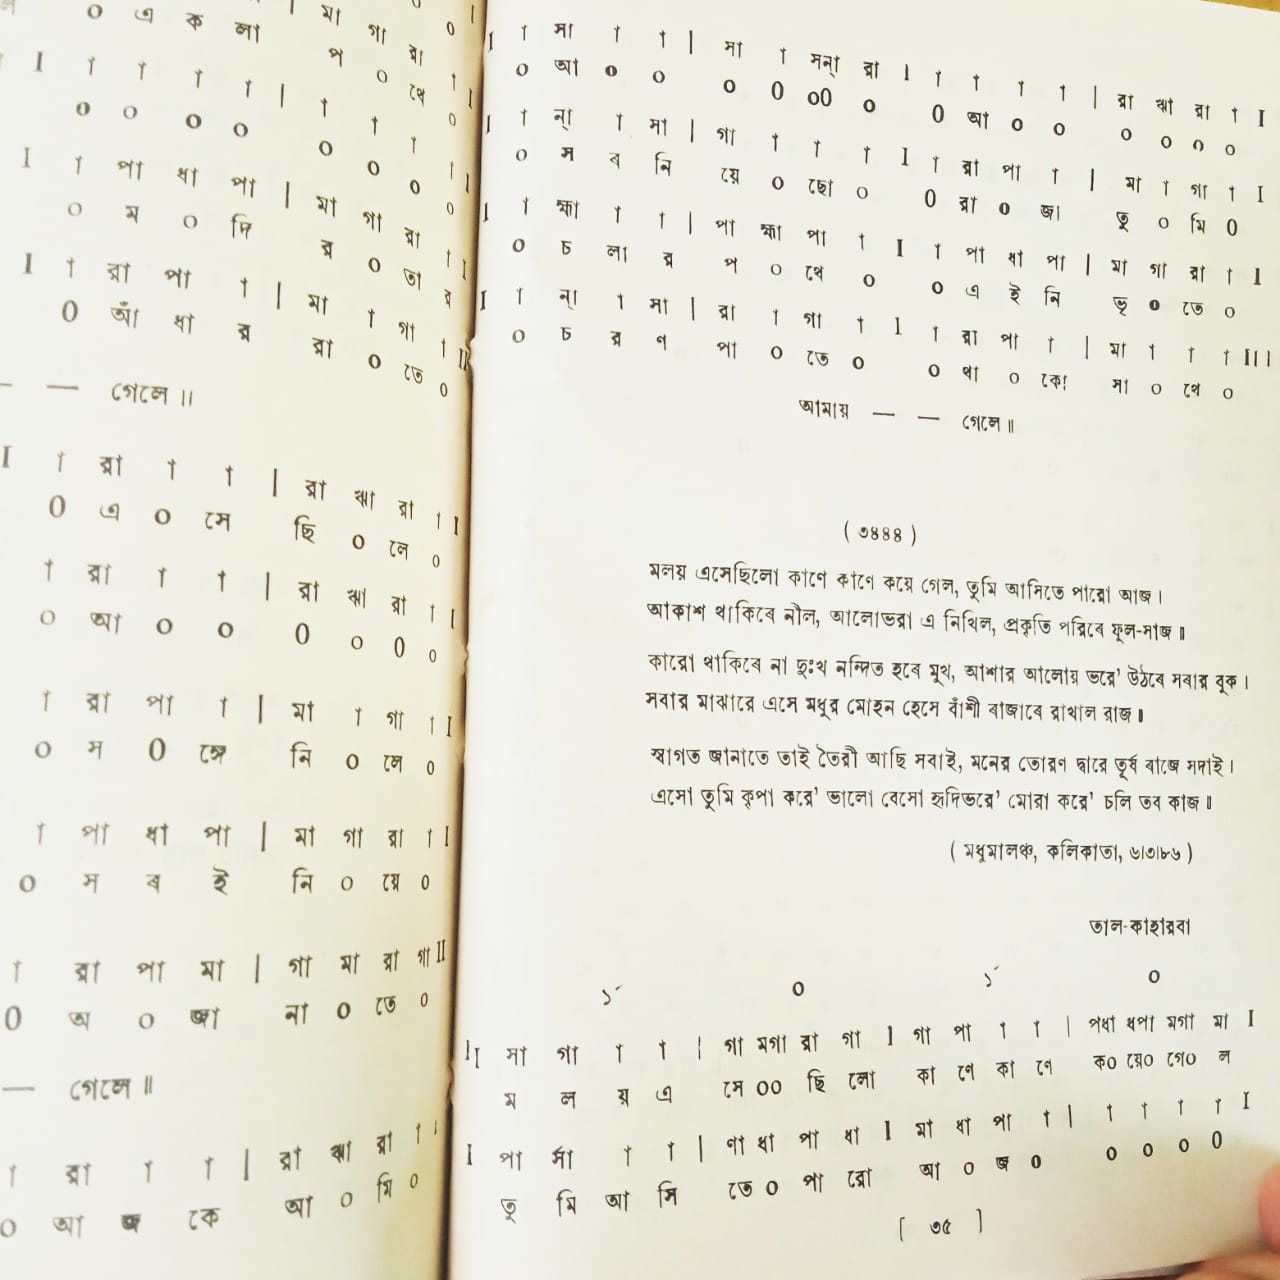 ০ এ ক লা প ০ থে ০
I া া া া | া া া া I
০ ০ ০ ০ ০ ০ ০ ০
I া পা ধা পা | মা গা রা া I
০ ম ০ দি র ০ তা র
I া রা পা া | মা া গা া II
০ আঁ ধা র রা ০ তে ০
— — গেলে ॥
I া রা া া | রা ঋা রা া I
০ এ ০ সে ছি ০ লে ০
া রা া া | রা ঋা রা া I
০ আ ০ ০ ০ ০ ০ ০
া রা পা া | মা া গা া I
০ স ০ ঙ্গে নি ০ লে ০
া পা ধা পা | মা গা রা া I
০ স ব ই নি ০ য়ে ০
া রা পা মা | গা মা রা গা II
০ অ ০ জা না ০ তে ০
— গেলে ॥
া রা া া | রা ঋা রা া I
০ আ জ কে আ ০ মি ০
I া সা া া | সা া সন্‌া রা I া া া া | রা ঋা রা া I
০ আ ০ ০ ০ ০ ০০ ০ ০ আ ০ ০ ০ ০ ০ ০
I া ন্‌া া সা | গা া া া I া রা পা া | মা া গা া I
০ স ব নি য়ে ০ ছো ০ ০ রা ০ জা তু ০ মি ০
I া হ্মা া া | পা হ্মা পা া I া পা ধা পা | মা গা রা া I
০ চ লা র প ০ থে ০ ০ এ ই নি ভৃ ০ তে ০
I া ন্‌া া সা | রা া গা া I া রা পা া | মা া া া III
০ চ র ণ পা ০ তে ০ ০ থা ০ কো সা ০ থে ০
আমায় — — গেলে ॥
( ৩৪৪৪ )
মলয় এসেছিলো কাণে কাণে কয়ে গেল, তুমি আসিতে পারো আজ ।
আকাশ থাকিবে নীল, আলোভরা এ নিখিল, প্রকৃতি পরিবে ফুল-সাজ ॥
কারো থাকিবে না দুঃখ নন্দিত হবে মুখ, আশার আলোয় ভরে’ উঠবে সবার বুক ।
সবার মাঝারে এসে মধুর মোহন হেসে বাঁশী বাজাবে রাখাল রাজ ॥
স্বাগত জানাতে তাই তৈরী আছি সবাই, মনের তোরণ দ্বারে তূর্য বাজে সদাই ।
এসো তুমি কৃপা করে’ ভালো বেসো হৃদিভরে’ মোরা করে’ চলি তব কাজ ॥
( মধুমালঞ্চ, কলিকাতা, ৬।৩।৮৬ )
তাল-কাহারবা
১´ ০ ১´ ০
II সা গা া া | গা মগা রা গা I গা পা া া | পধা ধপা মগা মা I
ম ল য় এ সে ০০ ছি লো কা ণে কা ণে ক০ য়ে০ গে০ ল
I পা র্সা া া | ণা ধা পা ধা I মা ধা পা া | া া া া I
তু মি আ সি তে ০ পা রো আ ০ জ ০ ০ ০ ০ ০
[ ৩৫ ]